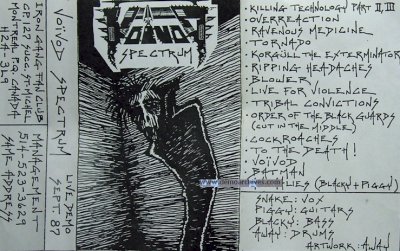 VOIVOD
SPECTRUM
VOIVOD SPECTRUM
LIVE DEMO
SEPT. 87
IRON GANG FAN CLUB
CP. 127 SUCC. ST-MICHEL
MONTREAL, P.Q., CANADA
H2A 3L9
MANAGEMENT
514-523-3629
SAME ADDRESS
·KILLING TECHNOLOGY PART II, III
·OVERREACTION
·RAVENOUS MEDICINE
·TORNADO
·KORGÜLL THE EXTERMINATOR
·RIPPING HEADACHES
·BLOWER
·LIVE FOR VIOLENCE
·TRIBAL CONVICTIONS
·ORDER OF THE BLACKGUARDS
(CUT IN THE MIDDLE)
·COCKROACHES
·TO THE DEATH!
·VOIVOD
·BATMAN
LIES (BLACKY+PIGGY)
www.demoarchives.com
SNAKE: VOX
PIGGY: GUITARS
BLACKY: BASS
AWAY: DRUMS
ARTWORK: AWAY